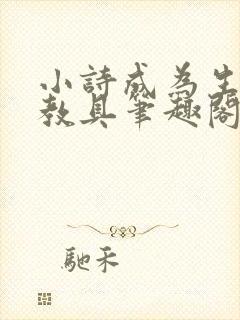 小詩成為生
教具筆趣閣
馳禾